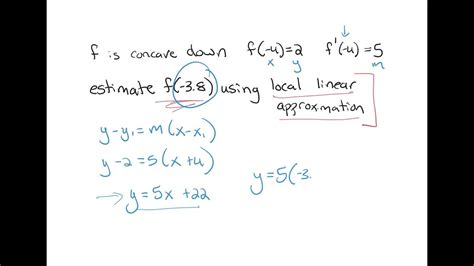 f is concave down f(-4)=2 f'(-4)=5
x y m
estimate f(-3.8) using local linear
approximation
y-y₁=m(x-x₁)
y-2=5(x+4)
→ y=5x+22 y=5(-3.